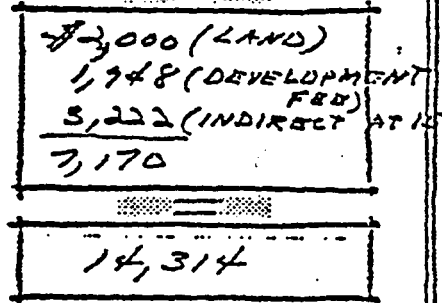 $2,000 (LAND)
1,948 (DEVELOPMENT
FEE)
3,222 (INDIRECT AT 15
7,170
=
14,314